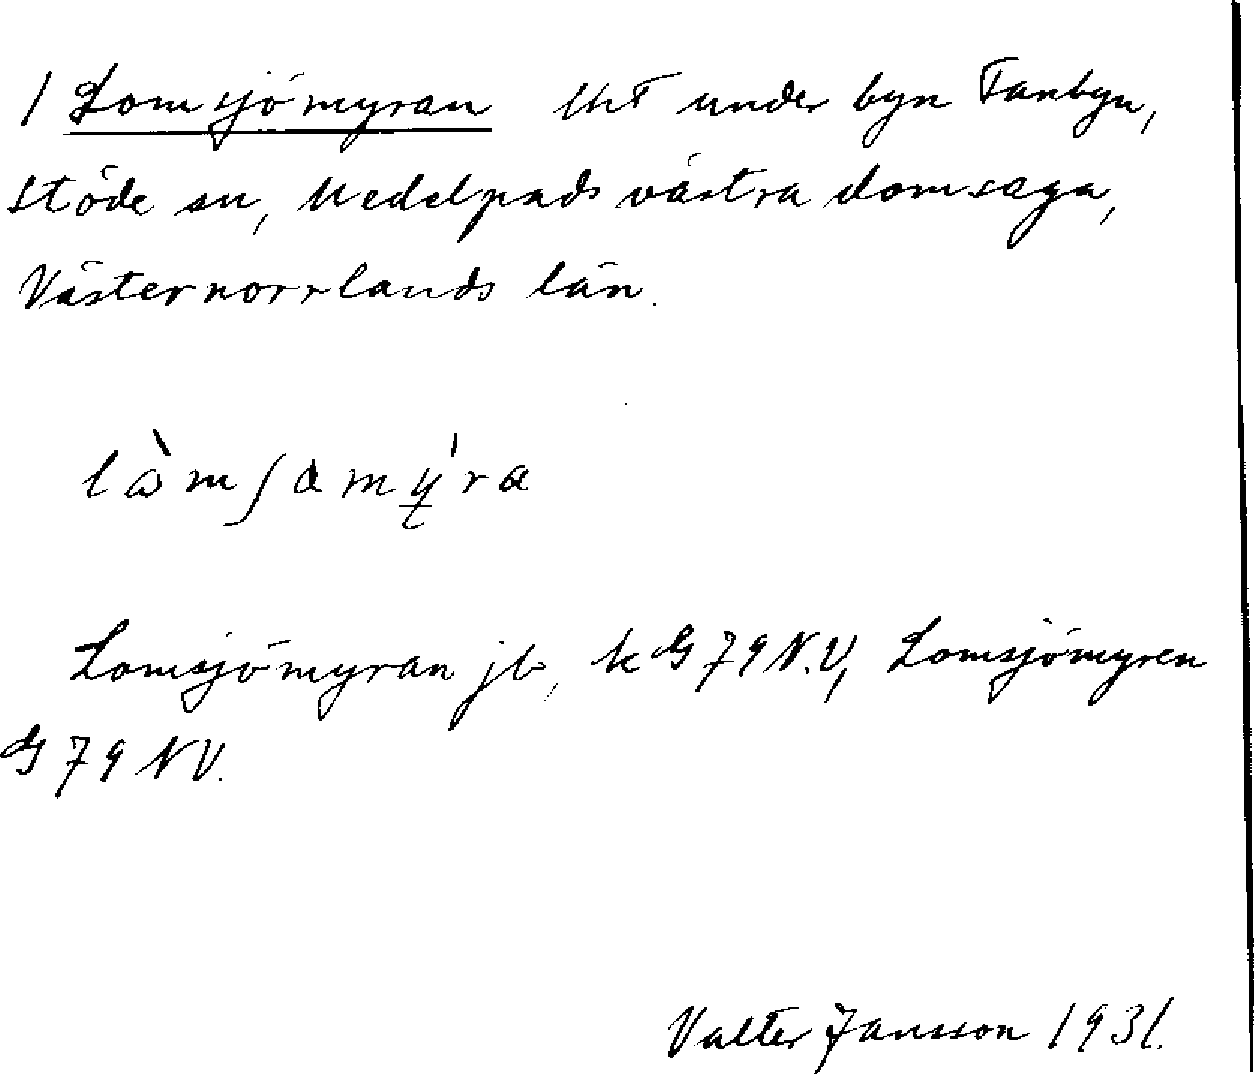 / Lomsjömyran Uht under byn Fanbyn,
Stöde sn, Medelpads västra domsaga,
Västernorrlands län.
Lomsjömyran jb, kG 79 N.V, Lomsjömyren
G 79 NV.
Valter Jansson 1931.